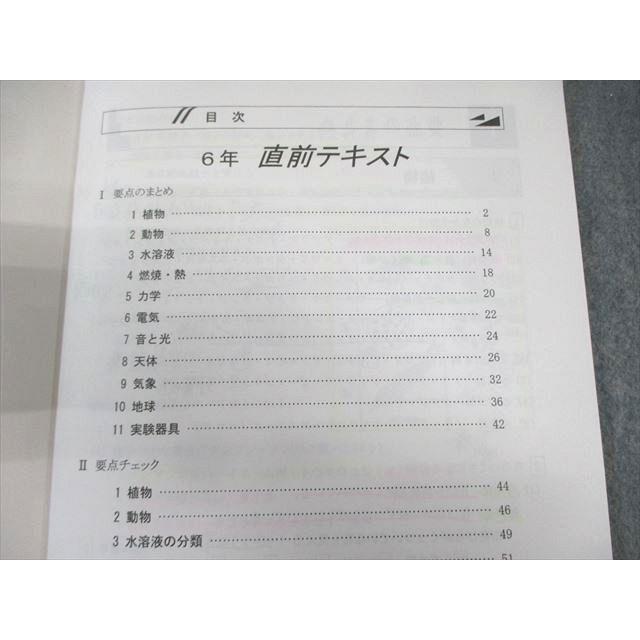 目 次
6年 直前テキスト
I 要点のまとめ
1 植物 2
2 動物 8
3 水溶液 14
4 燃焼・熱 18
5 力学 20
6 電気 22
7 音と光 24
8 天体 26
9 気象 32
10 地球 36
11 実験器具 42
II 要点チェック
1 植物 44
2 動物 46
3 水溶液の分類 49
51